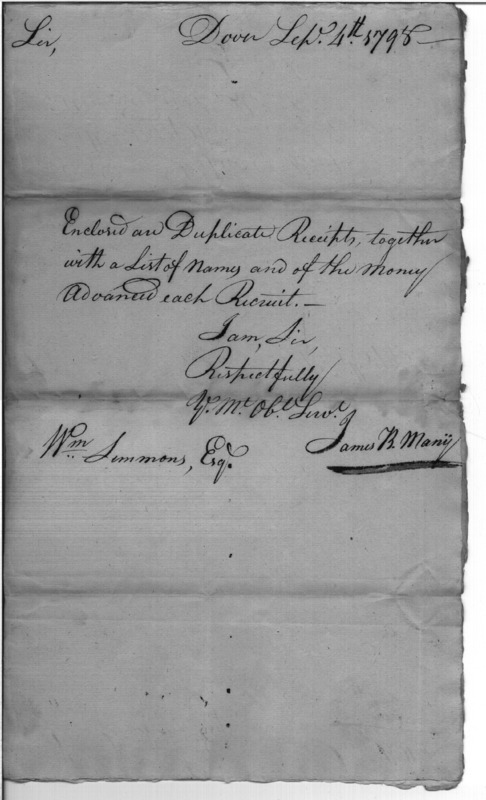 Sir, Dover Sepr. 4th. 1798—
Enclosed are Duplicate Receipts, together
with a List of Names and of the Money
Advanced each Recruit.—
I am, Sir,
Respectfully
Yr. Mt. Obt. Servt.
James B. Many
Wm Simmons, Esqr.